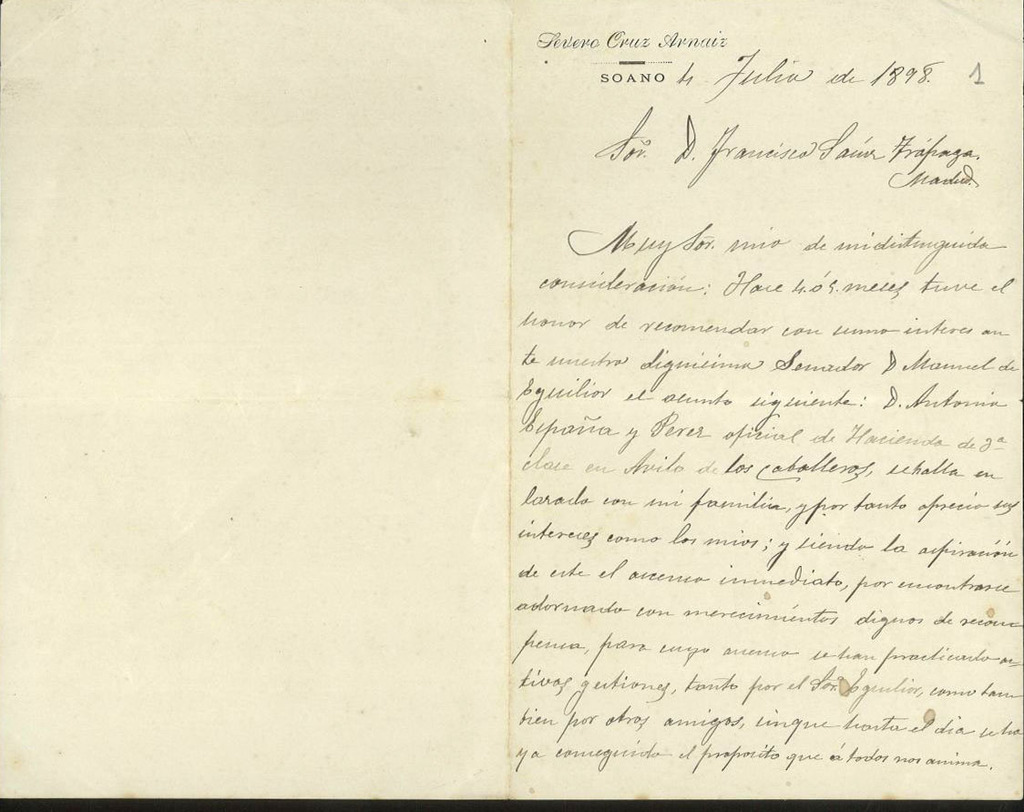 Severo Cruz Arnaiz
SOANO 4 Julio de 1898. 1
Sor. D. Francisco Sainz Trápaga.
Madrid.
Muy Sor. mio de mi distinguida
consideración: Hace 4 ó 5 meses tuve el
honor de recomendar con sumo interes an
te nuestro dignisimo Senador D Manuel de
Eguilior el asunto siguiente: D. Antonio
España y Perez oficial de Hacienda de 3ª
clase en Avila de los Caballeros, se halla en
lazado con mi familia, y por tanto aprecio sus
intereses como los mios; y siendo la aspiración
de este el ascenso inmediato, por encontrarse
adornado con merecimientos dignos de recom
pensa, para cuyo ascenso se han practicado ac
tivas gestiones, tanto por el Sor. Eguilior, como tam
bien por otros amigos, sin que hasta el dia se ha
ya conseguido el proposito que á todos nos anima.